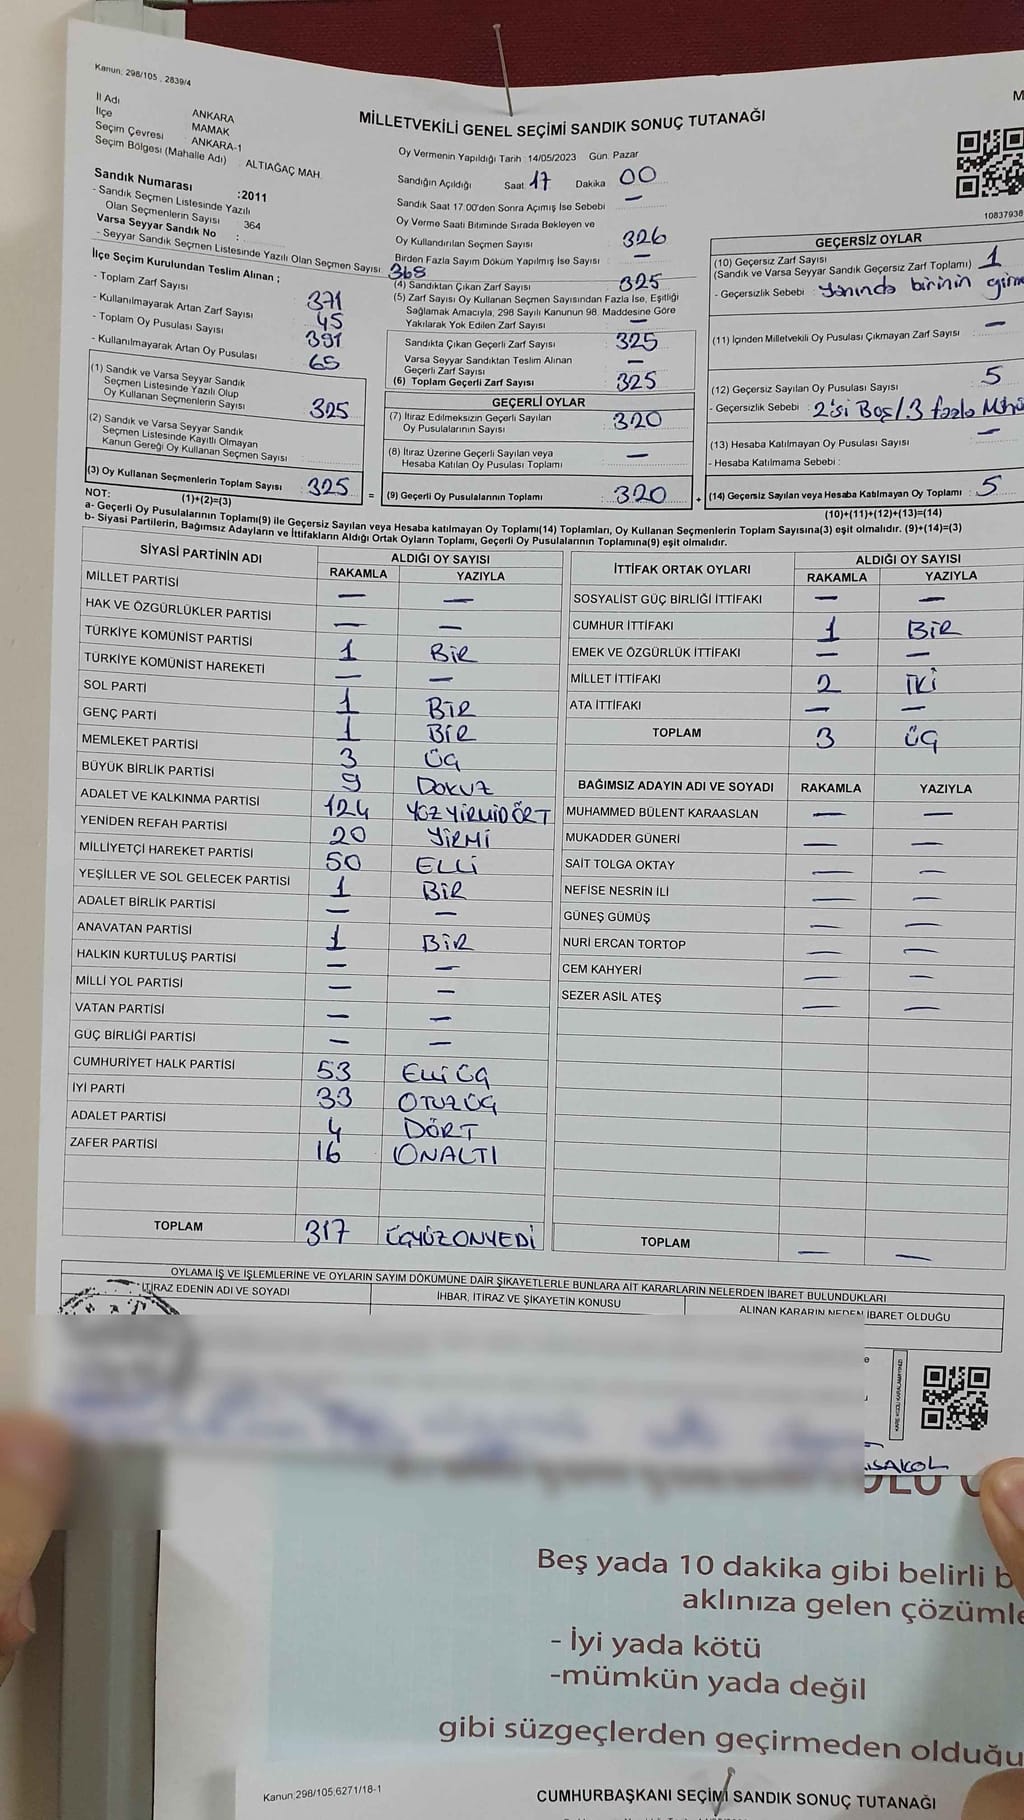 Kanun; 298/105 , 2839/4
M
İl Adı ANKARA
İlçe MAMAK
Seçim Çevresi ANKARA-1
Seçim Bölgesi (Mahalle Adı) : ALTIAĞAÇ MAH.
MİLLETVEKİLİ GENEL SEÇİMİ SANDIK SONUÇ TUTANAĞI
Sandık Numarası :2011
- Sandık Seçmen Listesinde Yazılı
Olan Seçmenlerin Sayısı 364
Varsa Seyyar Sandık No :
- Seyyar Sandık Seçmen Listesinde Yazılı Olan Seçmen Sayısı: 368
İlçe Seçim Kurulundan Teslim Alınan ;
- Toplam Zarf Sayısı 371
- Kullanılmayarak Artan Zarf Sayısı 45
- Toplam Oy Pusulası Sayısı 391
- Kullanılmayarak Artan Oy Pusulası 65
(1) Sandık ve Varsa Seyyar Sandık
Seçmen Listesinde Yazılı Olup
Oy Kullanan Seçmenlerin Sayısı 325
(2) Sandık ve Varsa Seyyar Sandık
Seçmen Listesinde Kayıtlı Olmayan
Kanun Gereği Oy Kullanan Seçmen Sayısı
(3) Oy Kullanan Seçmenlerin Toplam Sayısı : 325
(1)+(2)=(3)
Oy Vermenin Yapıldığı Tarih 14/05/2023 Gün: Pazar
Sandığın Açıldığı Saat 17 Dakika 00
Sandık Saat 17:00'den Sonra Açımış İse Sebebi —
Oy Verme Saati Bitiminde Sırada Bekleyen ve
Oy Kullandırılan Seçmen Sayısı 326
Birden Fazla Sayım Döküm Yapılmış İse Sayısı —
(4) Sandıktan Çıkan Zarf Sayısı 325
(5) Zarf Sayısı Oy Kullanan Seçmen Sayısından Fazla İse, Eşitliği
Sağlamak Amacıyla, 298 Sayılı Kanunun 98. Maddesine Göre
Yakılarak Yok Edilen Zarf Sayısı —
Sandıkta Çıkan Geçerli Zarf Sayısı 325
Varsa Seyyar Sandıktan Teslim Alınan
Geçerli Zarf Sayısı —
(6) Toplam Geçerli Zarf Sayısı 325
GEÇERLİ OYLAR
(7) İtiraz Edilmeksizin Geçerli Sayılan
Oy Pusulalarının Sayısı 320
(8) İtiraz Üzerine Geçerli Sayılan veya
Hesaba Katılan Oy Pusulası Toplamı —
= (9) Geçerli Oy Pusulalarının Toplamı 320 +
10837938
GEÇERSİZ OYLAR
(10) Geçersiz Zarf Sayısı
(Sandık ve Varsa Seyyar Sandık Geçersiz Zarf Toplamı) 1
- Geçersizlik Sebebi : Yanında birinin girm
(11) İçinden Milletvekili Oy Pusulası Çıkmayan Zarf Sayısı —
(12) Geçersiz Sayılan Oy Pusulası Sayısı 5
- Geçersizlik Sebebi : 2'si Boş / 3 fazla Mühü
(13) Hesaba Katılmayan Oy Pusulası Sayısı —
- Hesaba Katılmama Sebebi :
(14) Geçersiz Sayılan veya Hesaba Katılmayan Oy Toplamı : 5
(10)+(11)+(12)+(13)=(14)
NOT:
a- Geçerli Oy Pusulalarının Toplamı(9) ile Geçersiz Sayılan veya Hesaba katılmayan Oy Toplamı(14) Toplamları, Oy Kullanan Seçmenlerin Toplam Sayısına(3) eşit olmalıdır. (9)+(14)=(3)
b- Siyasi Partilerin, Bağımsız Adayların ve İttifakların Aldığı Ortak Oyların Toplamı, Geçerli Oy Pusulalarının Toplamına(9) eşit olmalıdır.
SİYASİ PARTİNİN ADI ALDIĞI OY SAYISI
RAKAMLA YAZIYLA
MİLLET PARTİSİ — —
HAK VE ÖZGÜRLÜKLER PARTİSİ — —
TÜRKİYE KOMÜNİST PARTİSİ 1 BİR
TÜRKİYE KOMÜNİST HAREKETİ — —
SOL PARTİ 1 BİR
GENÇ PARTİ 1 BİR
MEMLEKET PARTİSİ 3 ÜÇ
BÜYÜK BİRLİK PARTİSİ 9 DOKUZ
ADALET VE KALKINMA PARTİSİ 124 YÜZYİRMİDÖRT
YENİDEN REFAH PARTİSİ 20 YİRMİ
MİLLİYETÇİ HAREKET PARTİSİ 50 ELLİ
YEŞİLLER VE SOL GELECEK PARTİSİ 1 BİR
ADALET BİRLİK PARTİSİ — —
ANAVATAN PARTİSİ 1 BİR
HALKIN KURTULUŞ PARTİSİ — —
MİLLİ YOL PARTİSİ — —
VATAN PARTİSİ — —
GÜÇ BİRLİĞİ PARTİSİ — —
CUMHURİYET HALK PARTİSİ 53 ELLİ ÜÇ
İYİ PARTİ 33 OTUZÜÇ
ADALET PARTİSİ 4 DÖRT
ZAFER PARTİSİ 16 ONALTI
TOPLAM 317 ÜÇYÜZONYEDİ
İTTİFAK ORTAK OYLARI ALDIĞI OY SAYISI
RAKAMLA YAZIYLA
SOSYALİST GÜÇ BİRLİĞİ İTTİFAKI — —
CUMHUR İTTİFAKI 1 BİR
EMEK VE ÖZGÜRLÜK İTTİFAKI — —
MİLLET İTTİFAKI 2 İKİ
ATA İTTİFAKI — —
TOPLAM 3 ÜÇ
BAĞIMSIZ ADAYIN ADI VE SOYADI RAKAMLA YAZIYLA
MUHAMMED BÜLENT KARAASLAN — —
MUKADDER GÜNERİ — —
SAİT TOLGA OKTAY — —
NEFİSE NESRİN İLİ — —
GÜNEŞ GÜMÜŞ — —
NURİ ERCAN TORTOP — —
CEM KAHYERİ — —
SEZER ASİL ATEŞ — —
TOPLAM — —
OYLAMA İŞ VE İŞLEMLERİNE VE OYLARIN SAYIM DÖKÜMÜNE DAİR ŞİKAYETLERLE BUNLARA AİT KARARLARIN NELERDEN İBARET BULUNDUKLARI
İTİRAZ EDENİN ADI VE SOYADI İHBAR, İTİRAZ VE ŞİKAYETİN KONUSU ALINAN KARARIN NEDEN İBARET OLDUĞU
KARE KODU KARALAMAYINIZ!
Beş yada 10 dakika gibi belirli b
aklınıza gelen çözümle
- İyi yada kötü
-mümkün yada değil
gibi süzgeçlerden geçirmeden olduğu
Kanun;298/105;6271/18-1
CUMHURBAŞKANI SEÇİMİ SANDIK SONUÇ TUTANAĞI